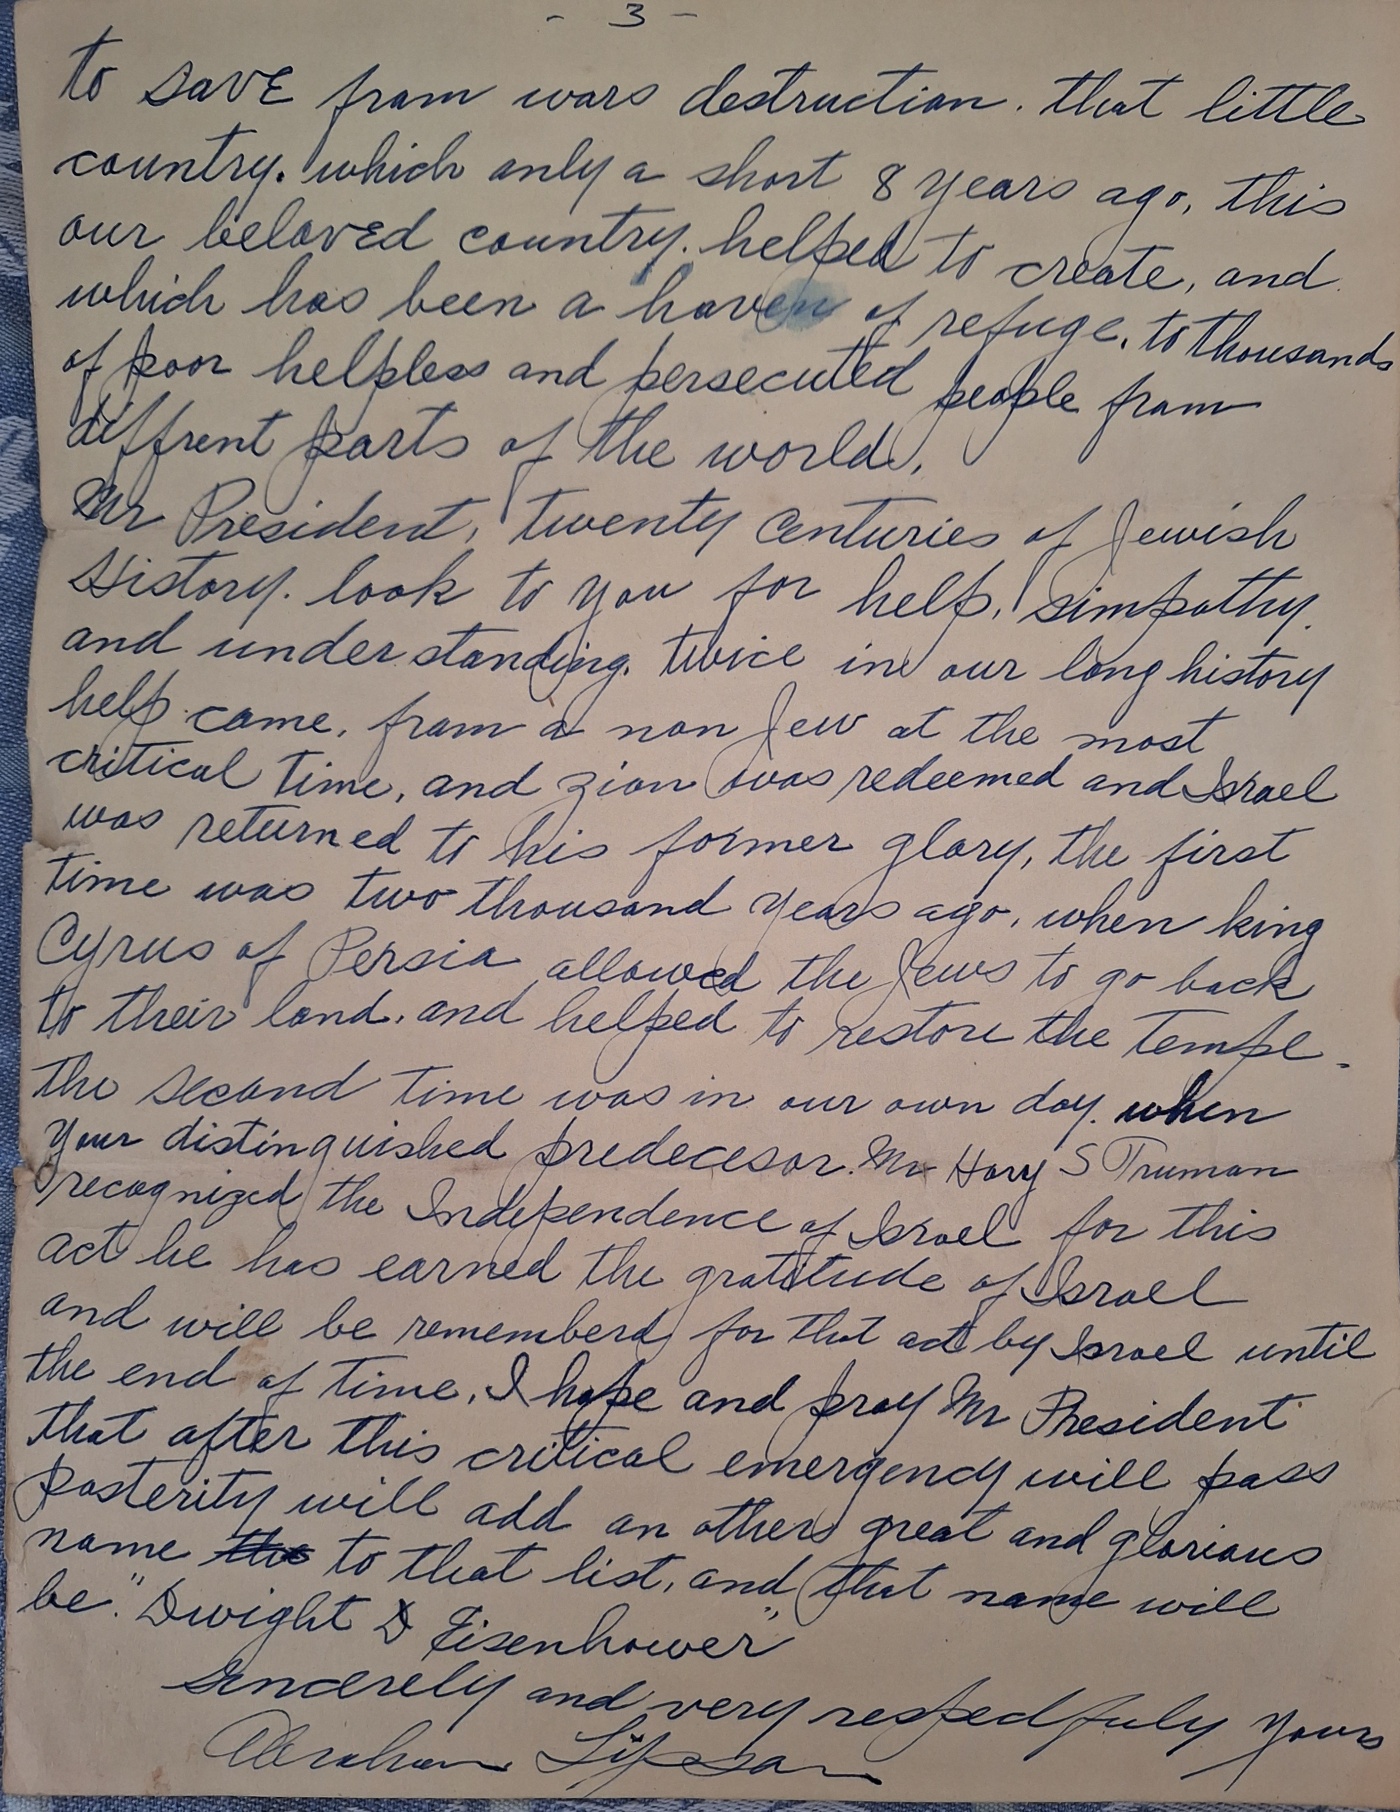 - 3 -
to save from wars destruction. that little
country. which only a short 8 years ago, this
our beloved country. helped to create, and
which has been a haven of refuge, to thousands
of poor helpless and persecuted people from
diffrent parts of the world,
Mr President, twenty centuries of Jewish
History. look to you for help, simpathy.
and understanding. twice in our long history
help came, from a non Jew at the most
critical time, and zion was redeemed and Israel
was returned to his former glory, the first
time was two thousand years ago, when king
Cyrus of Persia allowed the Jews to go back
to their land, and helped to restore the Tempe.
the second time was in our own day. when
your distinguished predecesor. Mr Hary S Truman
recognized the Independence of Israel for this
act he has earned the gratitude of Israel
and will be rememberd for that act by Israel until
the end of time, I hope and pray Mr President
that after this critical emergency will pass
posterity will add an other great and glorious
name the to that list, and that name will
be. "Dwight D Eisenhower"
Sincerely and very respectfuly yours
Abraham Lipson